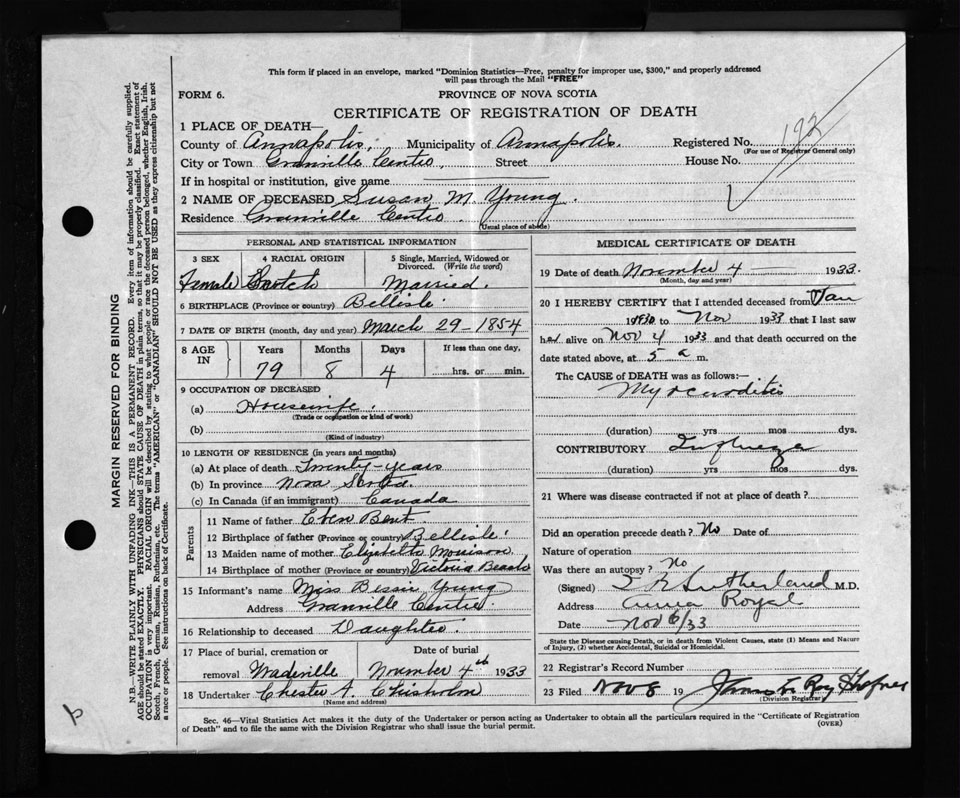 This form if placed in an envelope, marked "Dominion Statistics—Free, penalty for improper use, $300," and properly addressed
will pass through the Mail "FREE"
FORM 6.
PROVINCE OF NOVA SCOTIA
CERTIFICATE OF REGISTRATION OF DEATH
192
1 PLACE OF DEATH—
County of Annapolis, Municipality of Annapolis. Registered No.
(For use of Registrar General only)
City or Town Granville Centre Street House No.
If in hospital or institution, give name
2 NAME OF DECEASED Susan M. Young.
Residence Granville Centre.
(Usual place of abode)
PERSONAL AND STATISTICAL INFORMATION
3 SEX 4 RACIAL ORIGIN 5 Single, Married, Widowed or
Divorced. (Write the word)
Female Scotch Married.
6 BIRTHPLACE (Province or country) Bellisle.
7 DATE OF BIRTH (month, day and year) March 29-1854
8 AGE IN Years Months Days If less than one day,
79 8 4 hrs. or min.
9 OCCUPATION OF DECEASED
(a) Housewife.
(Trade or occupation or kind of work)
(b)
(Kind of industry)
10 LENGTH OF RESIDENCE (in years and months)
(a) At place of death Twenty-years
(b) In province Nova Scotia
(c) In Canada (if an immigrant) Canada
Parents
11 Name of father Eben Bent
12 Birthplace of father (Province or country) Bellisle.
13 Maiden name of mother Elizabeth Morrison
14 Birthplace of mother (Province or country) Victoria Beach
15 Informant's name Miss Bessie Young
Address Granville Centre.
16 Relationship to deceased Daughter.
17 Place of burial, cremation or Date of burial
removal Wadeville November 4th 1933
18 Undertaker Chester A. Chisholm
(Name and address)
MEDICAL CERTIFICATE OF DEATH
19 Date of death November 4 1933.
(Month, day and year)
20 I HEREBY CERTIFY that I attended deceased from Jan
1930 to Nov 1933 that I last saw
her alive on Nov 4 1933 and that death occurred on the
date stated above, at 5 a m.
The CAUSE of DEATH was as follows:—
Myocarditis
(duration) yrs mos dys.
CONTRIBUTORY Influenza
(duration) yrs mos dys.
21 Where was disease contracted if not at place of death?
Did an operation precede death? No Date of
Nature of operation
Was there an autopsy? No
(Signed) Sutherland M.D.
Address Anna Royal
Date Nov 6/33
State the Disease causing Death, or in death from Violent Causes, state (1) Means and Nature
of Injury, (2) whether Accidental, Suicidal or Homicidal.
22 Registrar's Record Number
23 Filed Nov 6 19 Roy Shafner
(Division Registrar)
Sec. 46—Vital Statistics Act makes it the duty of the Undertaker or person acting as Undertaker to obtain all the particulars required in the "Certificate of Registration
of Death" and to file the same with the Division Registrar who shall issue the burial permit.
(OVER)
MARGIN RESERVED FOR BINDING
N.B.—WRITE PLAINLY WITH UNFADING INK—THIS IS A PERMANENT RECORD. Every item of information should be carefully supplied.
AGE should be stated EXACTLY. PHYSICIANS should STATE CAUSE OF DEATH in plain terms, so that it may be properly classified. Exact statement of
OCCUPATION is very important. RACIAL ORIGIN will be described by stating to what people or race the deceased person belonged, whether English, Irish,
Scotch, French, German, Russian, Ruthenian, etc. The terms "AMERICAN" or "CANADIAN" SHOULD NOT BE USED as they express citizenship but not
a race or people. See instructions on back of Certificate.